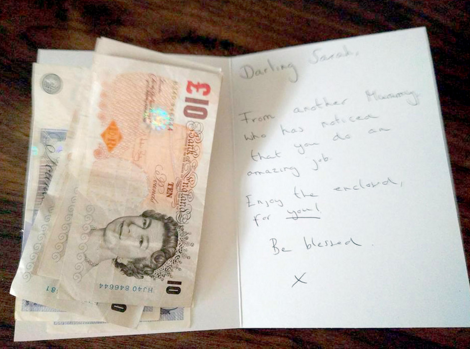 £10
Bank of England
TEN
10
HJ40 846644
Darling Sarah,
From another Mummy
who has noticed
that you do an
amazing job.
Enjoy the enclosed,
for you!
Be blessed.
X